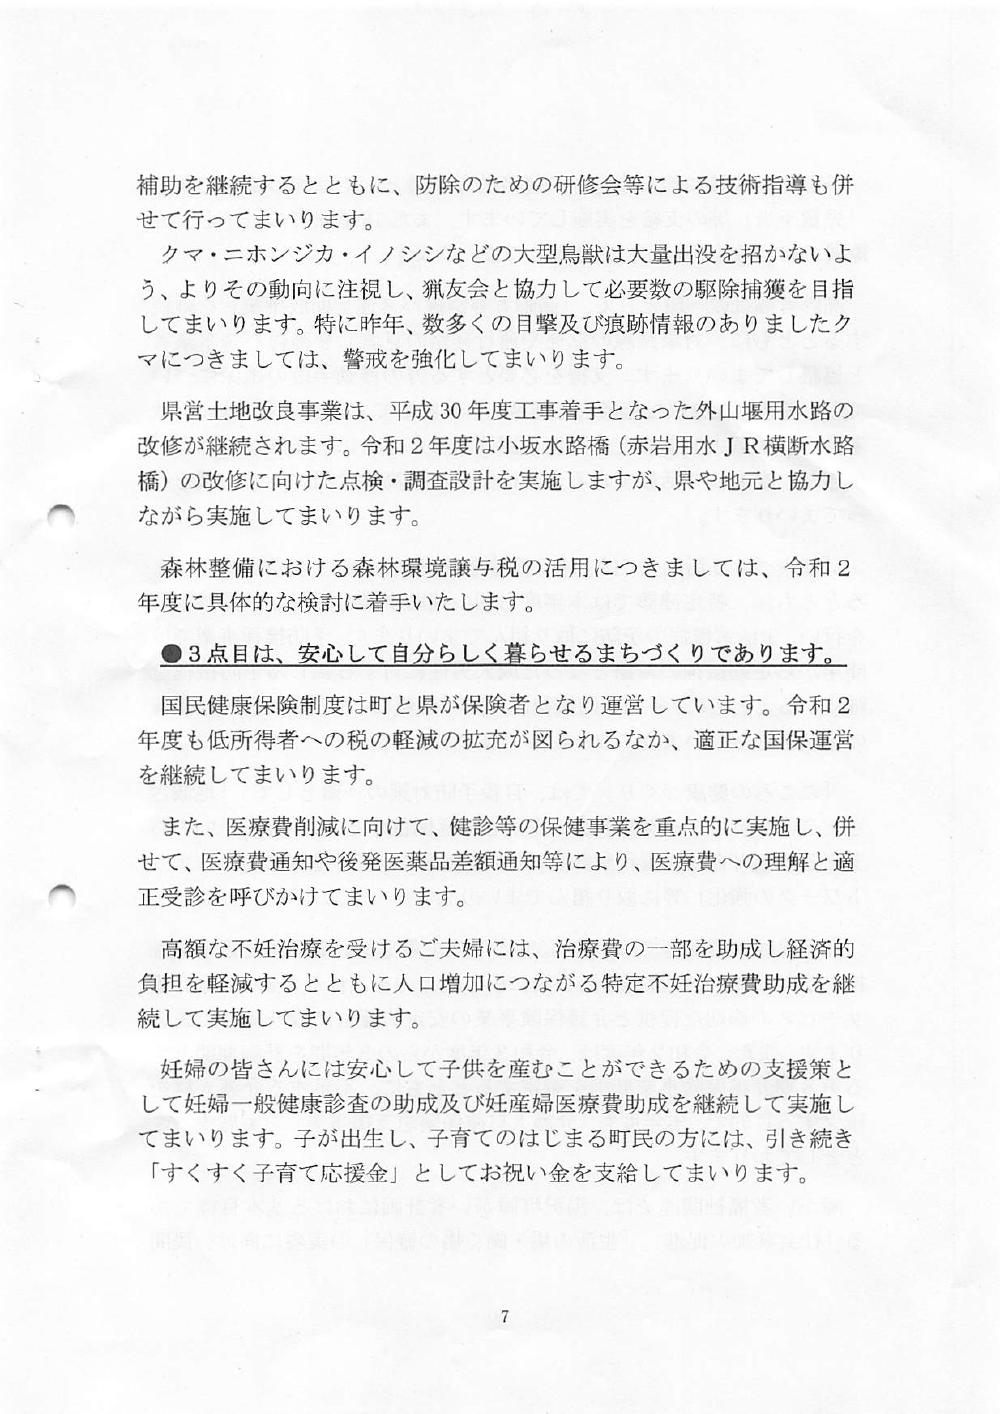 補助を継続するとともに、防除のための研修会等による技術指導も併
せて行ってまいります。
クマ・ニホンジカ・イノシシなどの大型鳥獣は大量出没を招かないよ
う、よりその動向に注視し、猟友会と協力して必要数の駆除捕獲を目指
してまいります。特に昨年、数多くの目撃及び痕跡情報のありましたク
マにつきましては、警戒を強化してまいります。
県営土地改良事業は、平成 30 年度工事着手となった外山堰用水路の
改修が継続されます。令和２年度は小坂水路橋（赤岩用水ＪＲ横断水路
橋）の改修に向けた点検・調査設計を実施しますが、県や地元と協力し
ながら実施してまいります。
森林整備における森林環境譲与税の活用につきましては、令和２
年度に具体的な検討に着手いたします。
●３点目は、安心して自分らしく暮らせるまちづくりであります。
国民健康保険制度は町と県が保険者となり運営しています。令和２
年度も低所得者への税の軽減の拡充が図られるなか、適正な国保運営
を継続してまいります。
また、医療費削減に向けて、健診等の保健事業を重点的に実施し、併
せて、医療費通知や後発医薬品差額通知等により、医療費への理解と適
正受診を呼びかけてまいります。
高額な不妊治療を受けるご夫婦には、治療費の一部を助成し経済的
負担を軽減するとともに人口増加につながる特定不妊治療費助成を継
続して実施してまいります。
妊婦の皆さんには安心して子供を産むことができるための支援策と
して妊婦一般健康診査の助成及び妊産婦医療費助成を継続して実施し
てまいります。子が出生し、子育てのはじまる町民の方には、引き続き
「すくすく子育て応援金」としてお祝い金を支給してまいります。
7